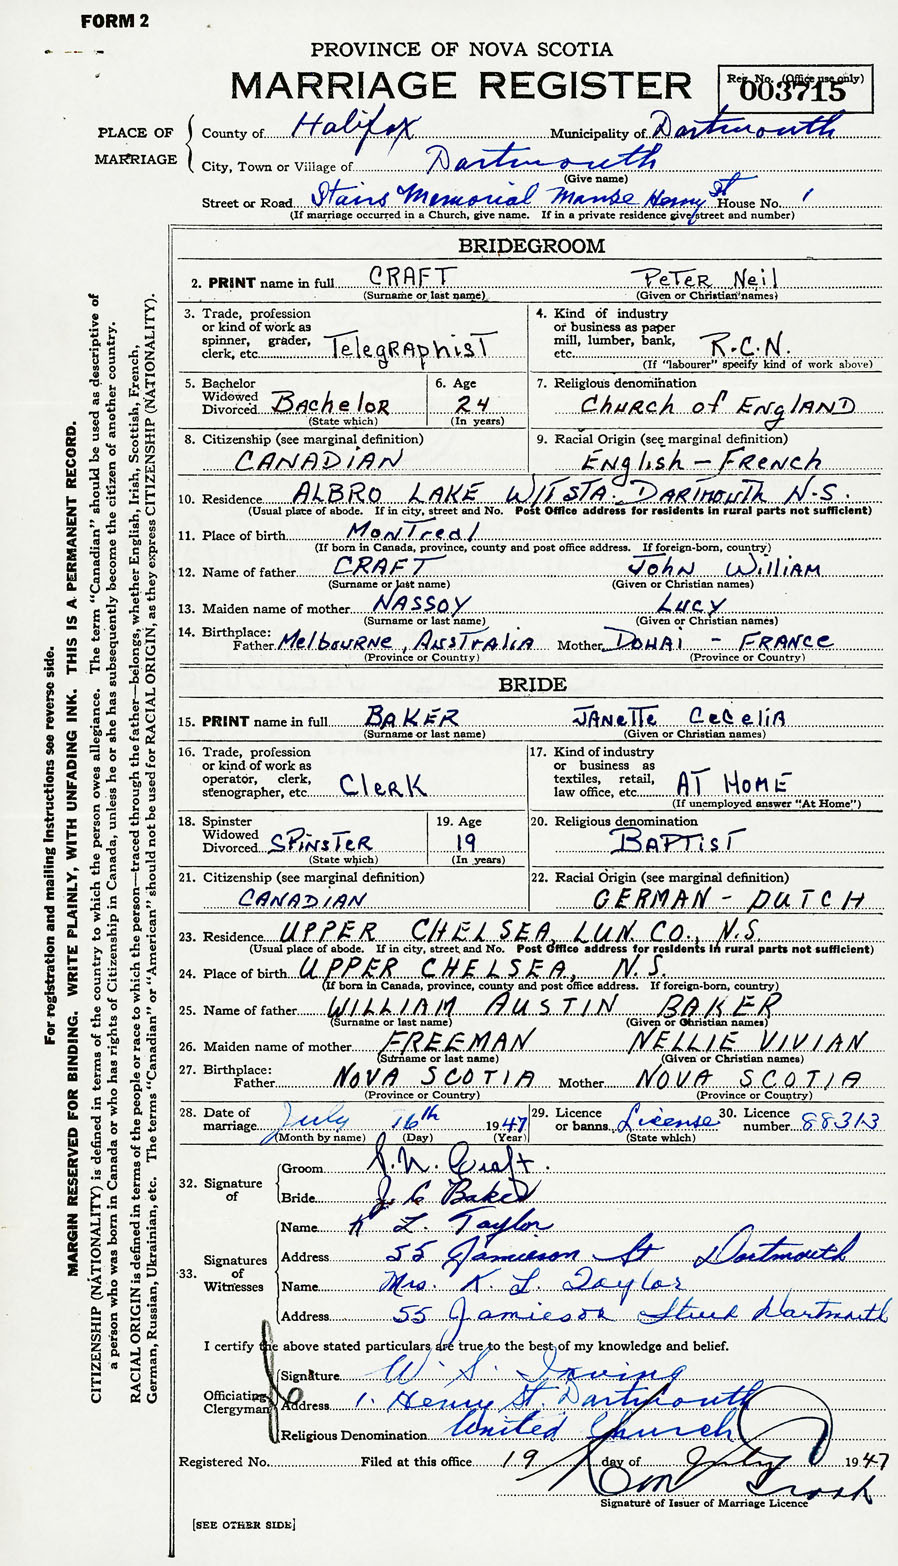 FORM 2
PROVINCE OF NOVA SCOTIA
MARRIAGE REGISTER
Reg. No. (Office use only)
003715
PLACE OF MARRIAGE
County of Halifax Municipality of Dartmouth
City, Town or Village of Dartmouth
(Give name)
Street or Road Stairs Memorial Manse Henry St House No. 1
(If marriage occurred in a Church, give name. If in a private residence give street and number)
BRIDEGROOM
2. PRINT name in full CRAFT Peter Neil
(Surname or last name) (Given or Christian names)
3. Trade, profession or kind of work as spinner, grader, clerk, etc. TelegRAPhisT
4. Kind of industry or business as paper mill, lumber, bank, etc. R.C.N.
(If "labourer" specify kind of work above)
5. Bachelor Widowed Divorced BAcheloR
(State which)
6. Age 24
(In years)
7. Religious denomination ChuRch of ENgLAND
8. Citizenship (see marginal definition) CANADIAN
9. Racial Origin (see marginal definition) ENglish - FRench
10. Residence ALBRO LAKE W/T STA. DARTMOUTH N.S.
(Usual place of abode. If in city, street and No. Post Office address for residents in rural parts not sufficient)
11. Place of birth MONTReal
(If born in Canada, province, county and post office address. If foreign-born, country)
12. Name of father CRAFT JOHN WILLIAM
(Surname or last name) (Given or Christian names)
13. Maiden name of mother NASSOY LUCY
(Surname or last name) (Given or Christian names)
14. Birthplace: Father MelBOURNE, AUSTRAliA Mother DOUAI - FRANCE
(Province or Country) (Province or Country)
BRIDE
15. PRINT name in full BAKER JANeTTe CeCeliA
(Surname or last name) (Given or Christian names)
16. Trade, profession or kind of work as operator, clerk, stenographer, etc. ClerK
17. Kind of industry or business as textiles, retail, law office, etc. AT HOME
(If unemployed answer "At Home")
18. Spinster Widowed Divorced SPiNSTER
(State which)
19. Age 19
(In years)
20. Religious denomination BAPTIST
21. Citizenship (see marginal definition) CANADIAN
22. Racial Origin (see marginal definition) GERMAN - DUTCH
23. Residence UPPER CHELSEA, LUN. CO., N.S.
(Usual place of abode. If in city, street and No. Post Office address for residents in rural parts not sufficient)
24. Place of birth UPPER CHELSEA, N.S.
(If born in Canada, province, county and post office address. If foreign-born, country)
25. Name of father WILLIAM AUSTIN BAKER
(Surname or last name) (Given or Christian names)
26. Maiden name of mother FREEMAN NELLIE VIVIAN
(Surname or last name) (Given or Christian names)
27. Birthplace: Father NOVA SCOTIA Mother NOVA SCOTIA
(Province or Country) (Province or Country)
28. Date of marriage July 16th 1947
(Month by name) (Day) (Year)
29. Licence or banns License
(State which)
30. Licence number 88313
32. Signature of
Groom P.N. Craft.
Bride J C Baker
33. Signatures of Witnesses
Name K L. Taylor
Address 55 Jamieson St Dartmouth
Name Mrs. K. L. Taylor
Address 55 Jamieson Street Dartmouth
I certify the above stated particulars are true to the best of my knowledge and belief.
Officiating Clergyman
Signature W. S. Irving
Address 1. Henry St. Dartmouth
Religious Denomination United Church
Registered No. Filed at this office 19 day of July 1947
Signature of Issuer of Marriage Licence
[SEE OTHER SIDE]
For registration and mailing instructions see reverse side.
MARGIN RESERVED FOR BINDING. WRITE PLAINLY, WITH UNFADING INK. THIS IS A PERMANENT RECORD.
CITIZENSHIP (NATIONALITY) is defined in terms of the country to which the person owes allegiance. The term "Canadian" should be used as descriptive of
a person who was born in Canada or who has rights of Citizenship in Canada, unless he or she has subsequently become the citizen of another country.
RACIAL ORIGIN is defined in terms of the people or race to which the person—traced through the father—belongs, whether English, Irish, Scottish, French,
German, Russian, Ukrainian, etc. The terms "Canadian" or "American" should not be used for RACIAL ORIGIN, as they express CITIZENSHIP (NATIONALITY).